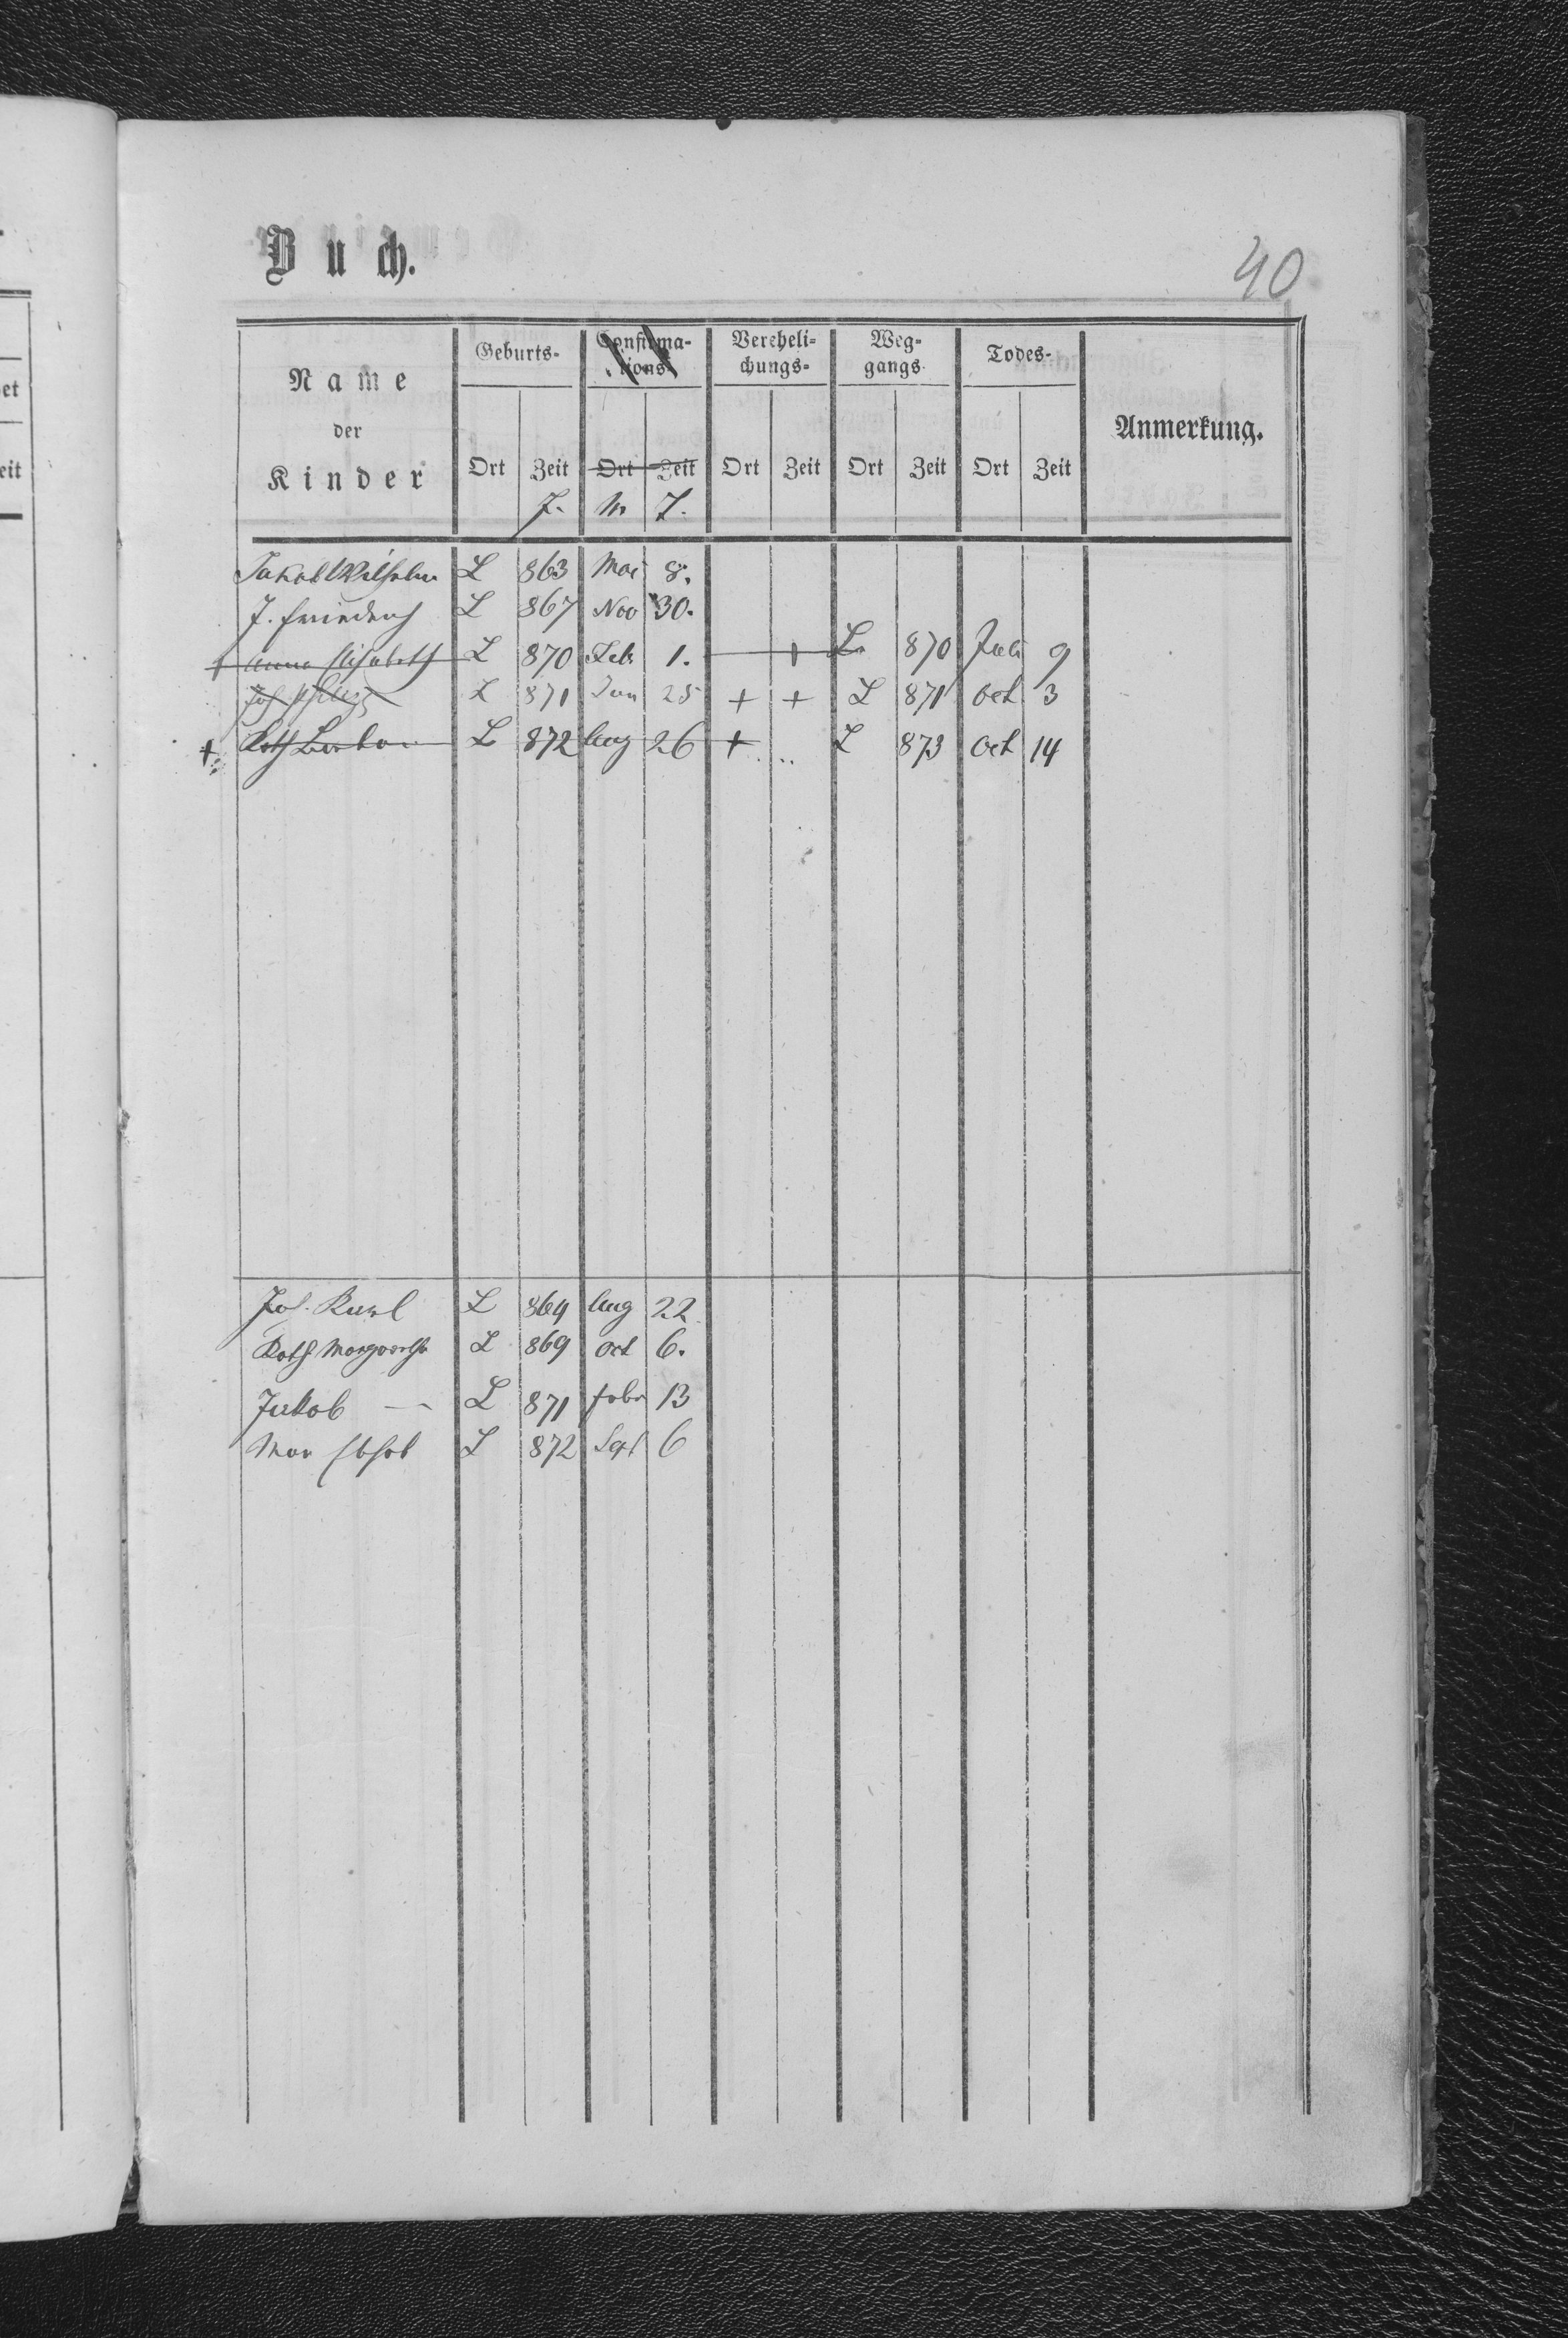 Buch.
40
Name der Kinder
Geburts-
Confirma-tions-
Vereheli-chungs-
Weg-gangs
Todes-
Anmerkung.
Ort Zeit Ort Zeit Ort Zeit Ort Zeit Ort Zeit
J. M. T.
Jakob Wilhelm L 863 Mai 8.
J. Friedrich L 867 Nov 30.
+ Anna Elisabeth L 870 Feb 1. + L 870 Juli 9
Joh L 871 Jan 25 + + L 871 Oct 3
+ Kath Barbara L 872 Aug 26 + L 873 Oct 14
Joh. Karl L 864 Aug 22
Kath Margaretha L 869 Oct 6.
Jakob L 871 Febr 13
Mar Elisab L 872 Sept 6
et
eit